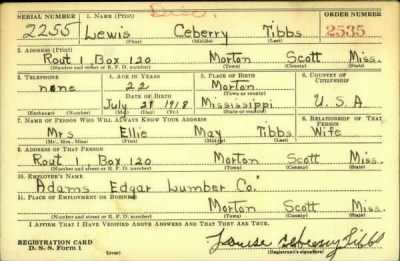 Disc.
SERIAL NUMBER 1. NAME (Print) ORDER NUMBER
2255 Lewis Ceberry Tibbs 2535
(First) (Middle) (Last)
2. ADDRESS (Print)
Rout 1 Box 120 Morton Scott Miss.
(Number and street or R. F. D. number) (Town) (County) (State)
3. TELEPHONE 4. AGE IN YEARS 5. PLACE OF BIRTH 6. COUNTRY OF CITIZENSHIP
none 22 Morton
DATE OF BIRTH (Town or county)
July 28 1918 Mississippi U.S.A
(Exchange) (Number) (Mo.) (Day) (Yr.) (State or country)
7. NAME OF PERSON WHO WILL ALWAYS KNOW YOUR ADDRESS 8. RELATIONSHIP OF THAT PERSON
Mrs Ellie May Tibbs Wife
(Mr., Mrs., Miss) (First) (Middle) (Last)
9. ADDRESS OF THAT PERSON
Rout 1 Box 120 Morton Scott Miss.
(Number and street or R. F. D. number) (Town) (County) (State)
10. EMPLOYER'S NAME
Adams Edgar Lumber Co.
11. PLACE OF EMPLOYMENT OR BUSINESS
Morton Scott Miss.
(Number and street or R. F. D. number) (Town) (County) (State)
I AFFIRM THAT I HAVE VERIFIED ABOVE ANSWERS AND THAT THEY ARE TRUE.
REGISTRATION CARD
D. S. S. Form 1 (over) (Registrant's signature)